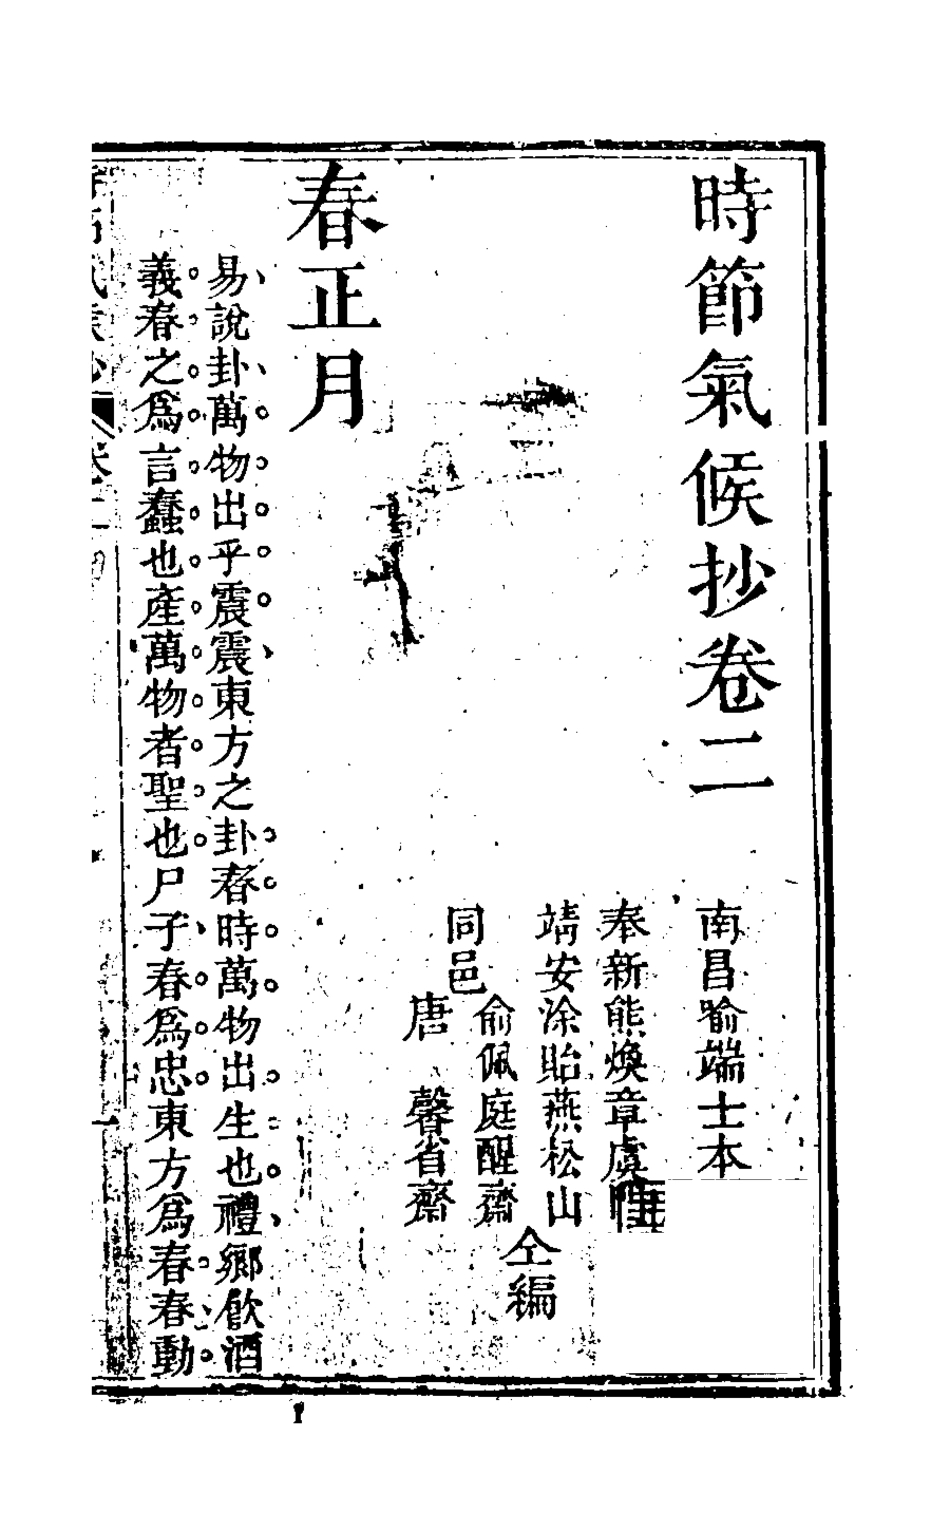 時節氣候抄卷二
南昌喻端士本
奉新熊煥章虞
靖安涂貽燕松山
同邑
俞佩庭醒齋
唐馨省齋
仝編
春正月
易說卦萬物出乎震震東方之卦春時萬物出生也禮鄉飲酒
義春之爲言蠢也產萬物者聖也尸子春爲忠東方爲春春動